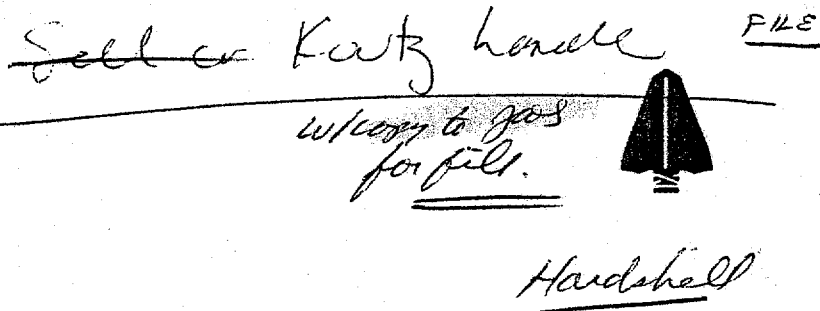 Katz handle
FILE
w/copy to
for file.
Hardshell